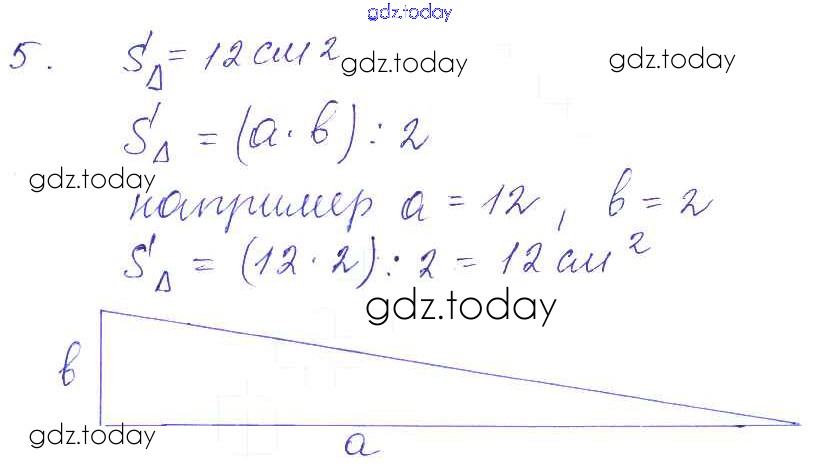 gdz.today
5. S△ = 12 см²
gdz.today gdz.today
S△ = (a · b) : 2
gdz.today
например a = 12, b = 2
S△ = (12 · 2) : 2 = 12 см²
gdz.today
b
gdz.today
a